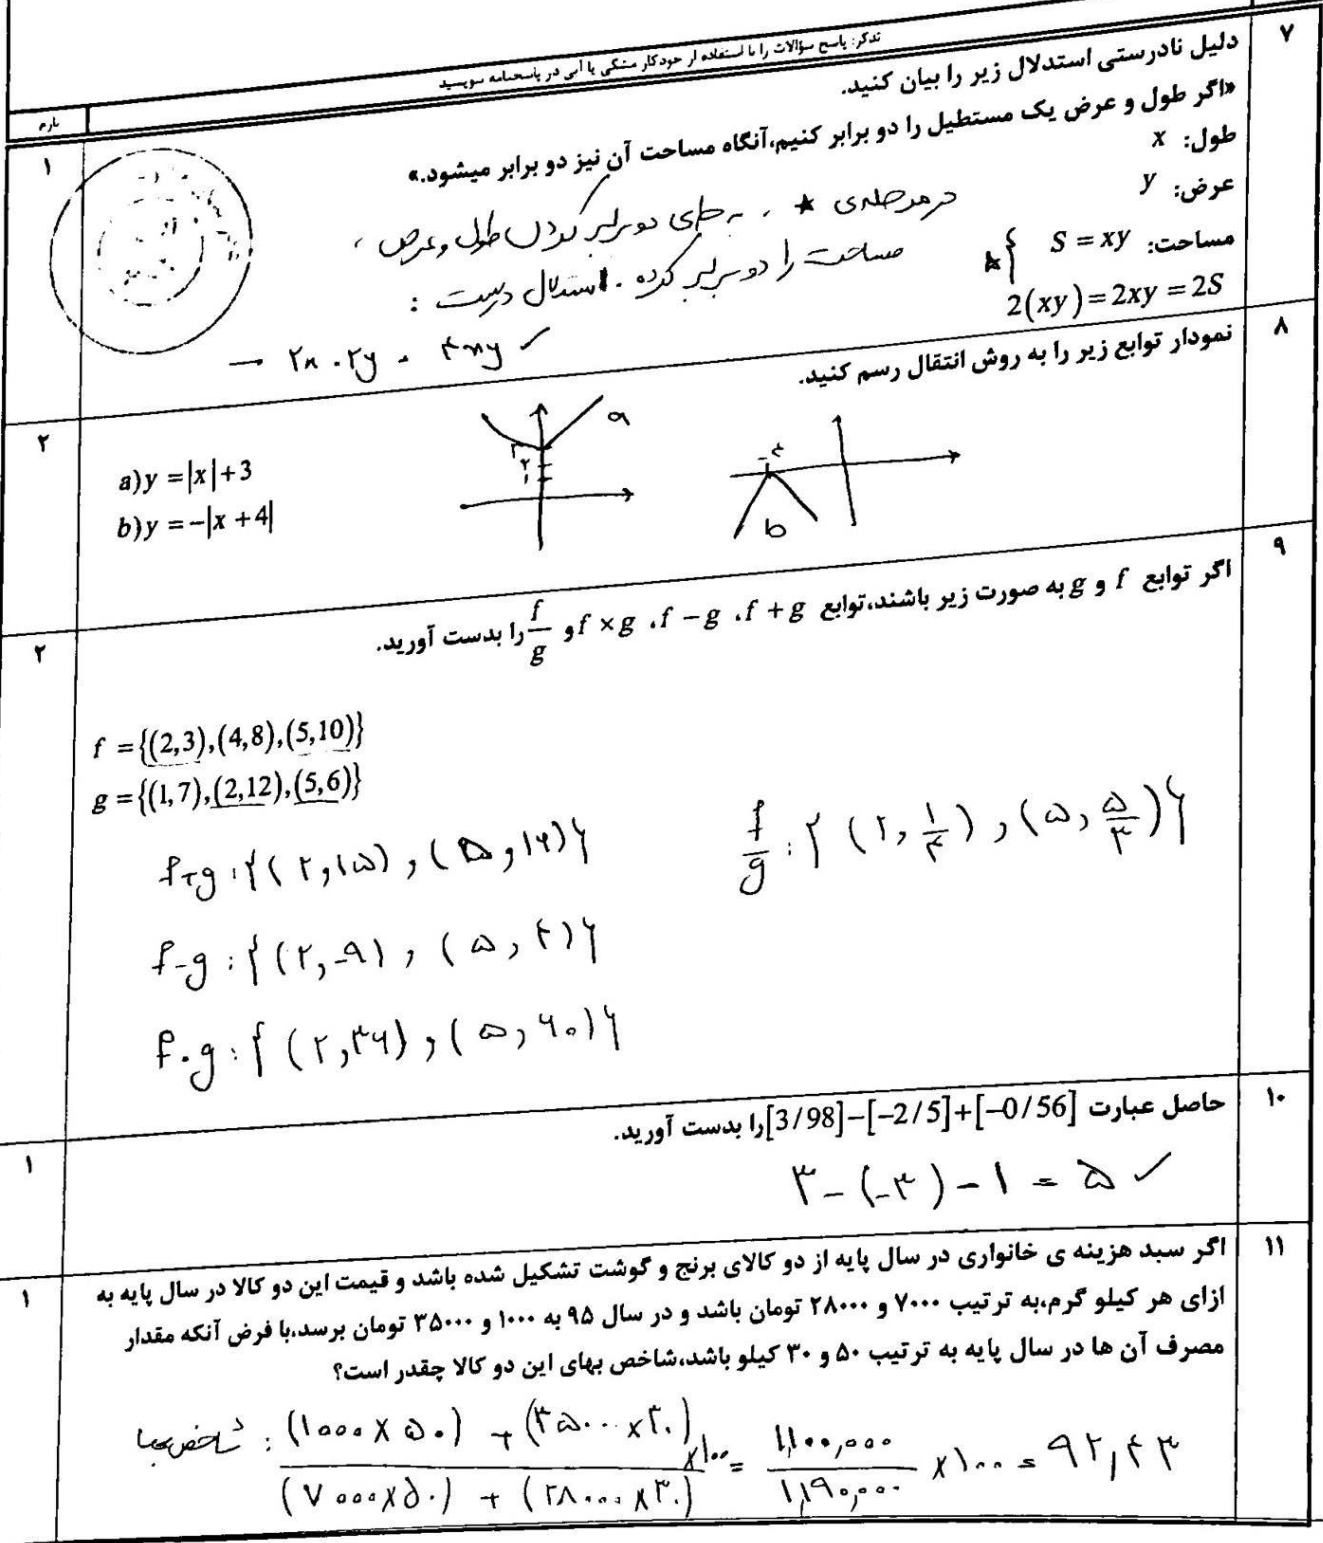 تذکر: پاسخ سؤالات را با استفاده از خودکار مشکی یا آبی در پاسخنامه بنویسید
بارم
۷
دلیل نادرستی استدلال زیر را بیان کنید.
«اگر طول و عرض یک مستطیل را دو برابر کنیم،آنگاه مساحت آن نیز دو برابر میشود.»
۱
طول: x
عرض: y
مساحت: S = xy
2(xy) = 2xy = 2S
در مرحله‌ی ★ ، به جای دو برابر کردن طول و عرض ،
مساحت را دو برابر کرده . استدلال درست :
→ ۲x . ۲y = ۴xy ✓
۸
نمودار توابع زیر را به روش انتقال رسم کنید.
۲
a) y = |x| + 3
b) y = -|x + 4|
a
۳
۲
۱
-۴
b
۹
اگر توابع f و g به صورت زیر باشند،توابع f + g، f − g، f × g و f/g را بدست آورید.
۲
f = {(2,3),(4,8),(5,10)}
g = {(1,7),(2,12),(5,6)}
f+g : {(۲,۱۵) , (۵,۱۶)}
f-g : {(۲,-۹) , (۵,۴)}
f.g : {(۲,۳۶) , (۵,۶۰)}
f/g : {(۲,۱/۴) , (۵,۵/۳)}
۱۰
حاصل عبارت [3/98]−[−2/5]+[−0/56] را بدست آورید.
۱
۳ - (-۳) - ۱ = ۵ ✓
۱۱
اگر سبد هزینه ی خانواری در سال پایه از دو کالای برنج و گوشت تشکیل شده باشد و قیمت این دو کالا در سال پایه به
ازای هر کیلو گرم،به ترتیب ۷۰۰۰ و ۲۸۰۰۰ تومان باشد و در سال ۹۵ به ۱۰۰۰ و ۳۵۰۰۰ تومان برسد،با فرض آنکه مقدار
مصرف آن ها در سال پایه به ترتیب ۵۰ و ۳۰ کیلو باشد،شاخص بهای این دو کالا چقدر است؟
۱
شاخص بها : (۱۰۰۰×۵۰) + (۳۵۰۰۰×۳۰) / (۷۰۰۰×۵۰) + (۲۸۰۰۰×۳۰) ×۱۰۰ = ۱,۱۰۰,۰۰۰ / ۱,۱۹۰,۰۰۰ ×۱۰۰ = ۹۲,۴۳